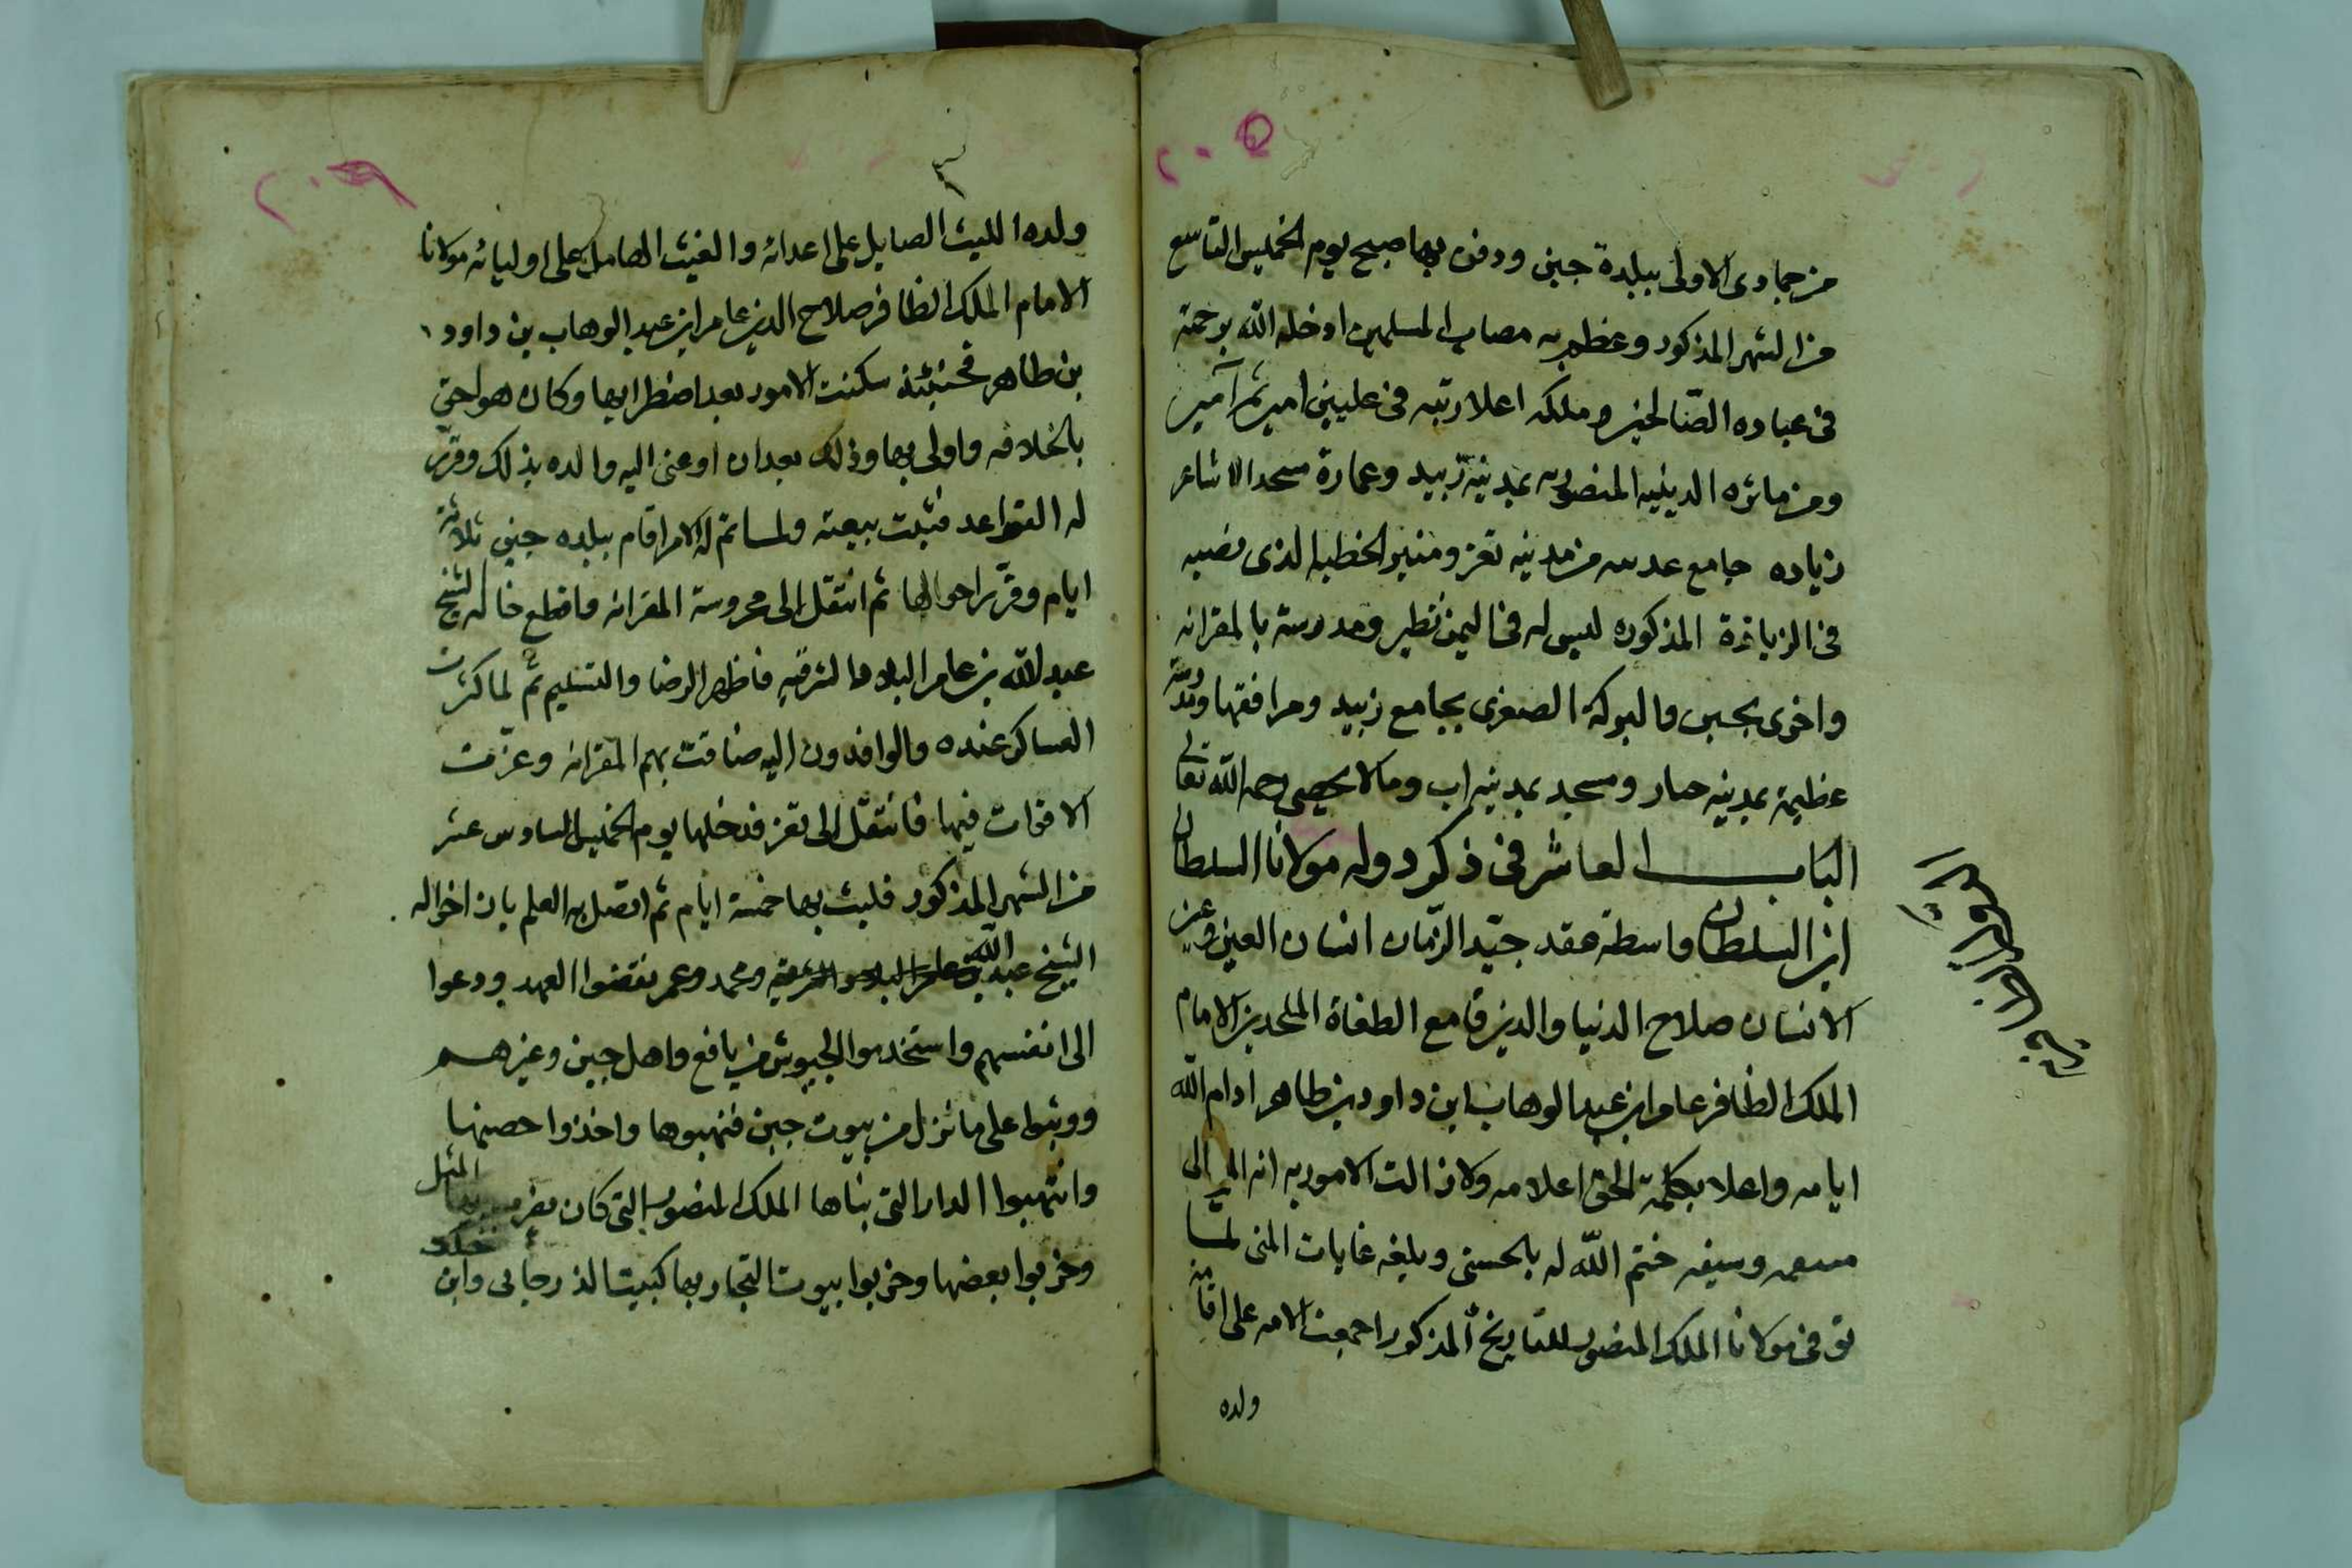 ٢٠٥
من جمادى الاولى ببلدة جبن ودفن بها صبح يوم الخميس التاسع
من الشهر المذكور وعظم به مصاب المسلمين ادخله الله برحمته
فى عباده الصالحين وملكه اعلا رتبه فى عليين امين ثم آمين
ومن ماثره الدينيه المنصوريه بمدينة زبيد وعمارة مسجد الاشاعر
زياده جامع عدينه من مدينه تعز ومنبر الخطبه الذى نصبه
فى الزيادة المذكوره ليس له فى اليمن نظير ومدرسة بالمقرانه
واخرى بجبن والبركة الصغرى بجامع زبيد ومرافقها ومدرسة
عظيمة بمدينه ومسجد بمدينه اب ومالا يحصى رحمه الله تعالى
الباب العاشر فى ذكر دوله مولانا السلطان
ابن السلطان واسطة عقد جيّد الزمان انسان العين وعين
الانسان صلاح الدنيا والدين قامع الطغاة الملحدين الامام
الملك الظافر عامر ابن عبد الوهاب ابن داود بن طاهر ادام الله
ايامه واعلا بكلمة الحق اعلامه ولا زالت الامور به
وسيفه ختم الله له بالحسنى وبلغه غايات المنى لمّا
توفى مولانا الملك المنصور للتاريخ المذكور اجمعت الامه على اقامة
ولده
٢٠٦
ولده الليث الصايل على اعدائه والغيث الهامل على اوليائه مولانا
الامام الملك الظافر صلاح الدين عامر ابن عبد الوهاب بن داود
بن طاهر فحينئذ سكنت الامور بعد اضطرابها وكان هو احق
بالخلافه واولى بها وذلك بعد ان اوصى اليه والده بذلك وقرّر
له القواعد فثبتت بيعته ولما تم له الامر اقام ببلده جبن ثلاثة
ايام وقرّر احوالها ثم انتقل الى محروسة المقرانه واقطع خاله الشيخ
عبد الله بن عامر البلاد الشرقيه فاظهر الرضا والتسليم ثم لما كثرت
العساكر عنده والوافدون اليه ضاقت بهم المقرانه وعزّت
الاقوات فيها فانتقل الى تعز فدخلها يوم الخميس السادس عشر
من الشهر المذكور فلبث بها خمسة ايام ثم اتصل به العلم بان اخواله
الشيخ عبد الله ومحمد وعمر نقضوا العهد ودعوا
الى انفسهم واستخدموا الجيوش من يافع واهل جبن وغيرهم
ووثبوا على ما نزل من بيوت جبن فنهبوها واخذوا حصنها
وانتهبوا الدار التى بناها الملك المنصور التى كان يضرب بها المثل
وخربوا بعضها وخربوا بيوت التجار بها كبيت وابن